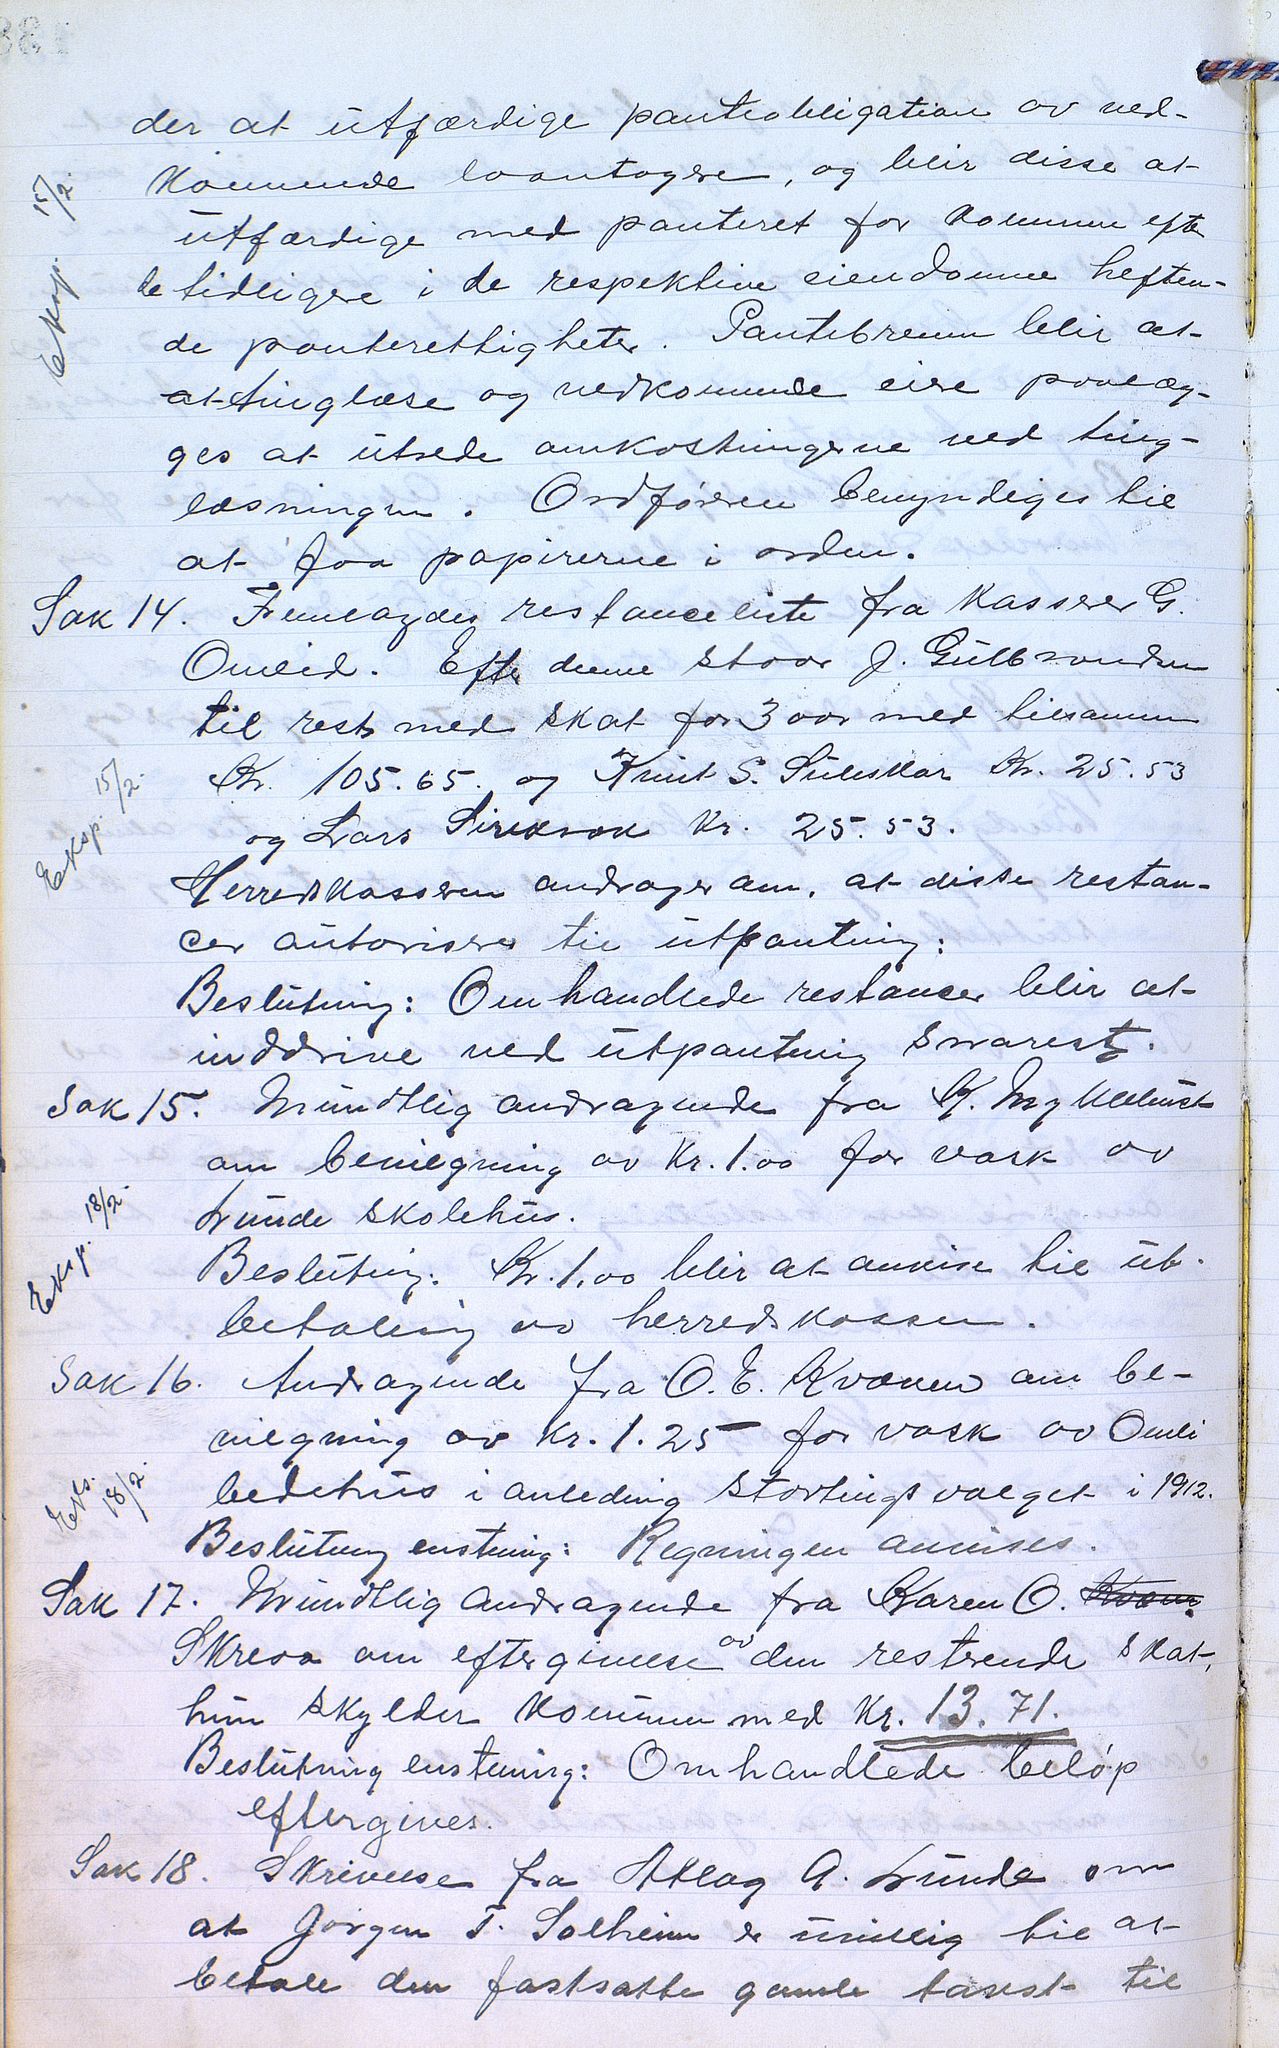 der at utfærdige panteobligation av ved-
kommende laantagere, og blir disse at
utfærdige med panteret for kommunen efter
de tidligere i de respektive eiendomme heften-
de panterettigheter. Pantebreven blir at
at tinglæse og vedkommende eiere paalæg-
ges at utrede omkostningerne ved ting-
læsningen. Ordføreren bemyndiges til
at faa papirerne i orden.
Eksp. 15/2.
Sak 14. Fremlagdes restanceliste fra kasserer G.
Omlid. Efter denne staar J. Gulbrandsen
til rest med skat for 3 aar med tilsammen
Kr. 105.65. og Knut S. Suleskar Kr. 25.53
og Lars Sirekrok Kr. 25.53.
Herredskasseren andrager om, at disse restan-
cer autoriseres til utpantning:
Beslutning: Omhandlede restancer blir at
inddrive ved utpantning snarest.
Eksp. 15/2.
Sak 15. Mundtlig andragende fra K. Myklebust
om bevilgning av Kr. 1.00 for vask av
Lunde skolehus.
Beslutning: Kr. 1,00 blir at anvise til ut-
betaling av herredskassen.
Eksp. 18/2.
Sak 16. Andragende fra O. E. Kvæven om be-
vilgning av Kr. 1.25 for vask av Omli
bedehus i anledning stortingsvalget i 1912.
Beslutning enstemig: Regningen anvises.
Eks. 18/2.
Sak 17. Mundtlig andragende fra Karen O. Kvæv.
Skreaa om eftergivelse av den resterende skat,
hun skylder kommunen med Kr. 13.71.
Beslutning enstemig: Omhandlede beløp
eftergives.
Sak 18. Skrivelse fra Atlag A. Lunde om
at Jørgen T. Solheim er uvillig til at
betale den fastsatte gamle takst til